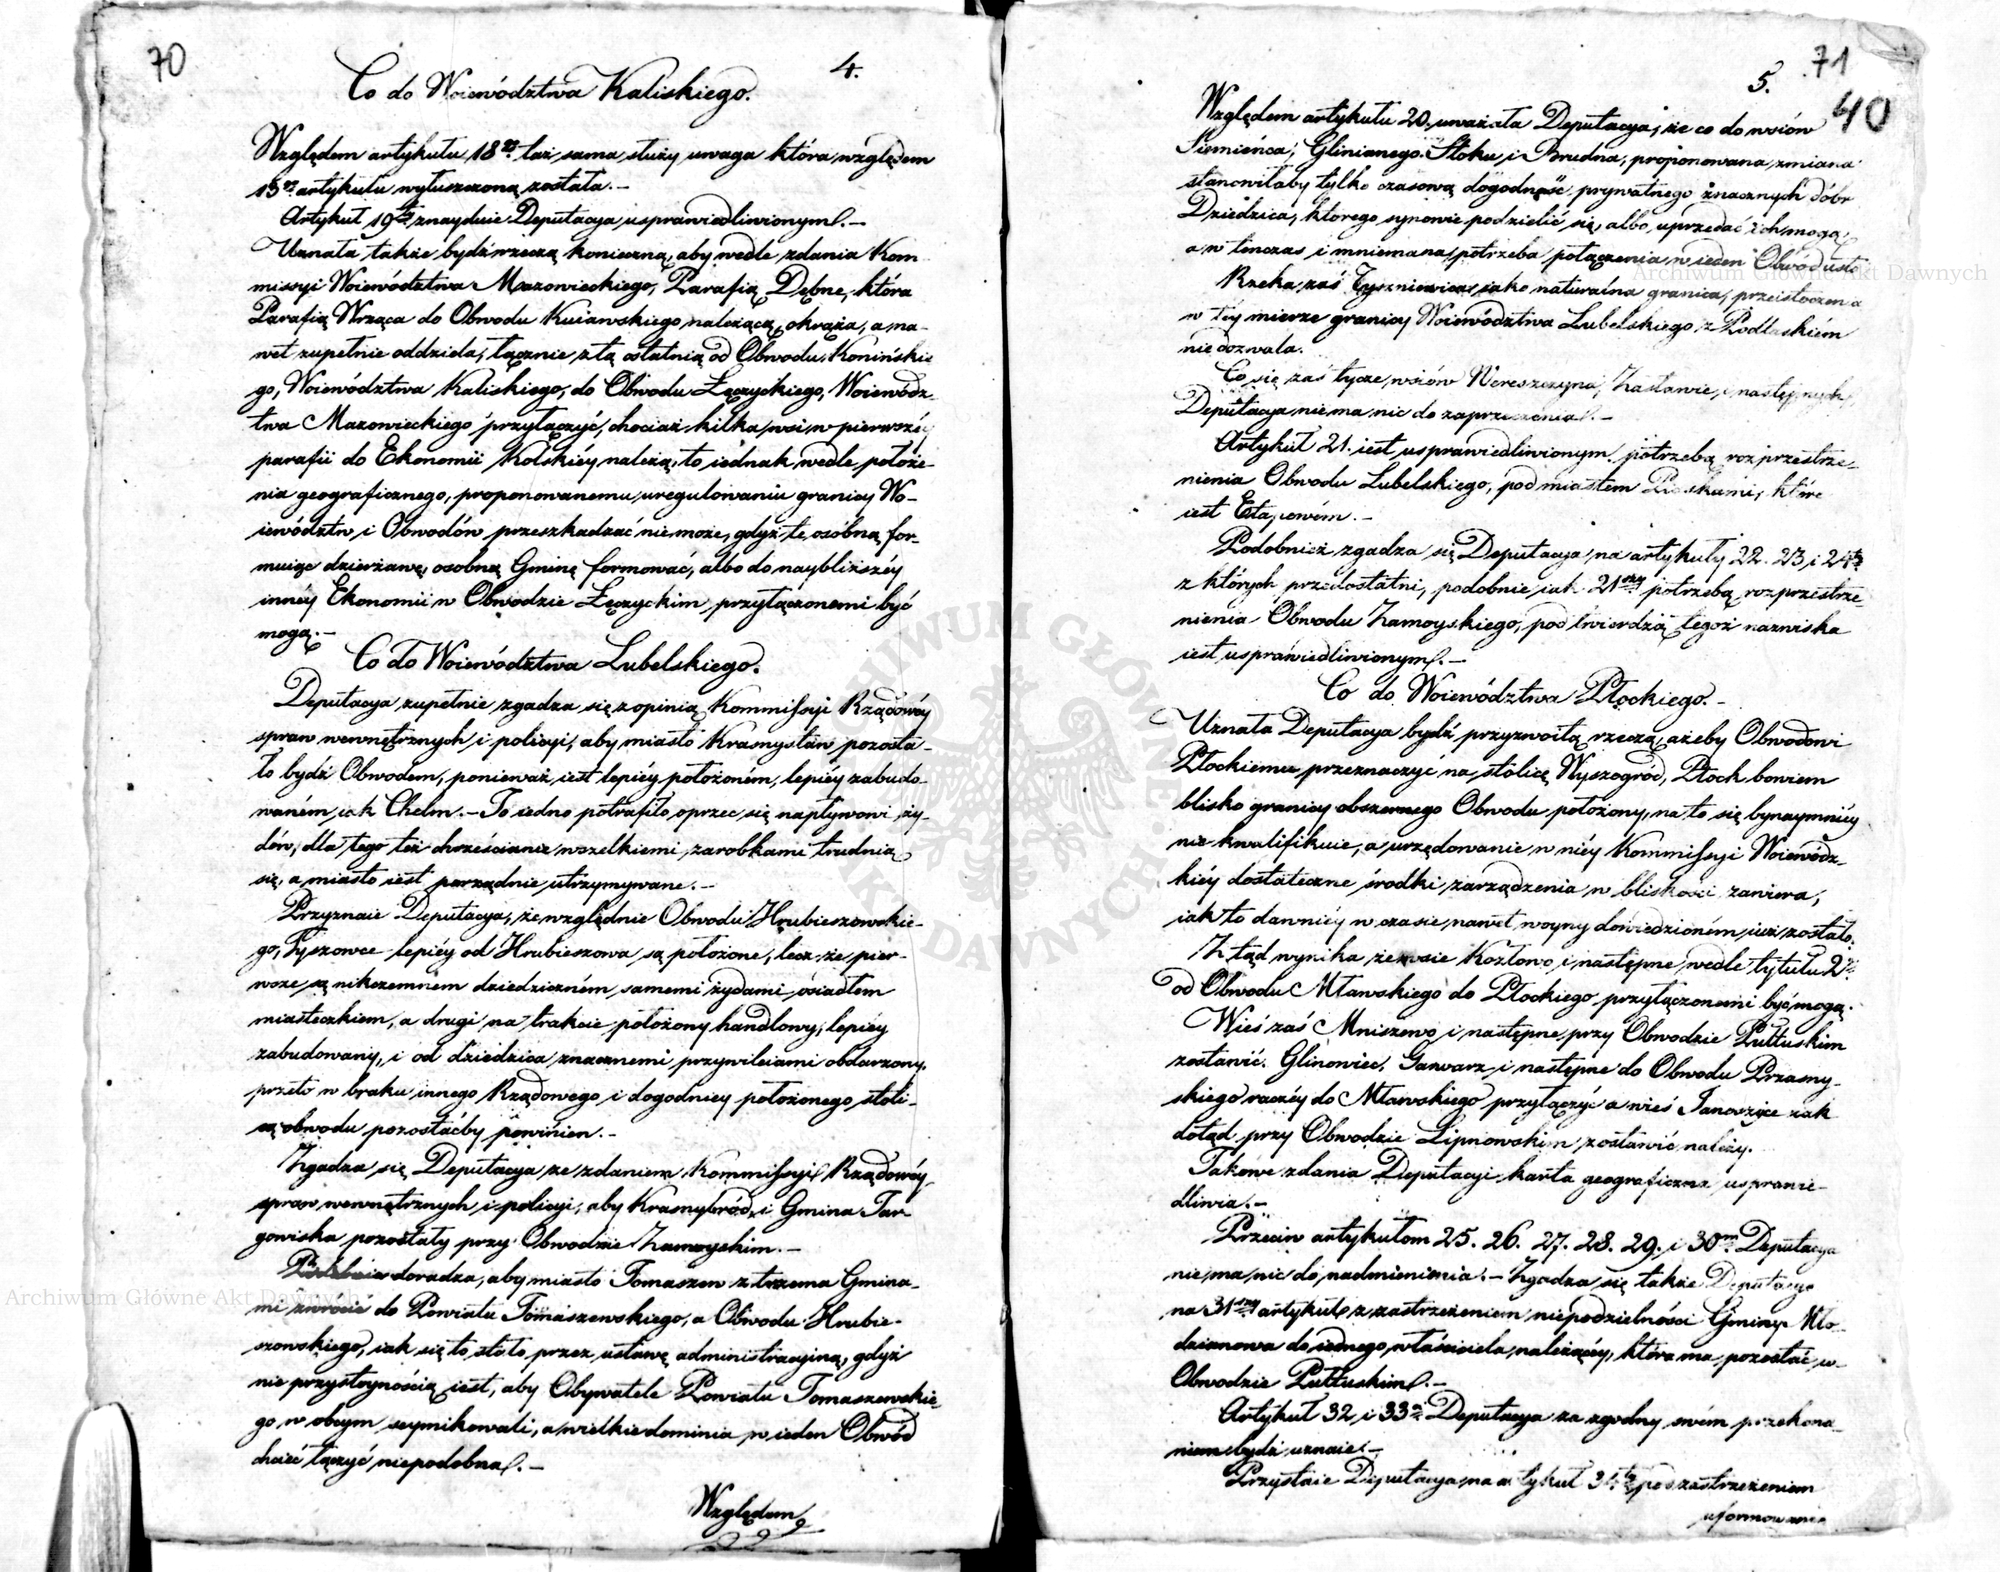 70
4.
Co do Woiewództwa Kaliskiego.
Względem artykułu 18go taż sama służy uwaga która względem
13go artykułu wyłuszczoną została.–
Artykuł 19ty znayduie Deputacya usprawiedliwionym.–
Uznała także bydź rzeczą konieczną, aby wedle zdania Kom
missyi Woiewództwa Mazowieckiego, Parafią Dębne, która
Parafią Wrząca do Obwodu Kuiawskiego należącą, okrąża, a na-
wet zupełnie oddziela, łącznie z tą ostatnią od Obwodu Konińskie
go, Woiewództwa Kaliskiego, do Obwodu Łęczyckiego, Woiewódz-
twa Mazowieckiego przyłączyć, chociaż kilka wsi w pierwszéy
parafii do Ekonomii Kolskiéy należą, to iednak wedle położe-
nia geograficznego, proponowanemu uregulowaniu granicy Wo-
iewództw i Obwodów przeszkadzać nie może, gdyż te osobną for-
muiąc dzierżawę, osobną Gminę formować, albo do naybliższéy
innéy Ekonomii w Obwodzie Łęczyckim przyłączonemi być
mogą.–
Co do Woiewództwa Lubelskiego.
Deputacya zupełnie zgadza się z opinią Kommissyi Rządowéy
spraw wewnętrznych i policyi, aby miasto Krasnystaw pozosta-
ło bydź Obwodem, ponieważ iest lepiéy położoném, lepiéy zabudo-
waném iak Chełm.– To iedno potrafiło oprzec się napływowi ży-
dów, dla tego też chrześcianie wszelkiemi zarobkami trudnią
się, a miasto iest porządnie utrzymywane.–
Przyznaie Deputacya, że względnie Obwodu Hrubieszowskie-
go, Tyszowce lepiéy od Hrubieszowa są położone, lecz że pier-
wsze są nikczemnem dziedziczném, samemi żydami osiadłem
miasteczkiem, a drugi na trakcie położony handlowy, lepiéy
zabudowany, i od dziedzica znacznemi przywileiami obdarzony,
przeto w braku innego Rządowego i dogodniey położonego stoli-
cą obwodu pozostaćby powinien.–
Zgadza się Deputacya ze zdaniem Kommissyi Rządowéy
spraw wewnętrznych i policyi, aby Krasnybród i Gmina Tar
gowiska pozostały przy Obwodzie Zamoyskim.–
doradza, aby miasto Tomaszow z trzema Gmina-
mi zwrócić do Powiatu Tomaszewskiego, a Obwodu Hrubie-
szowskiego, iak się to stało przez ustawę administracyiną, gdyż
nie przystoynością iest, aby Obywatele Powiatu Tomaszewskie
go w obcym seymikowali, a wielkie dominia w ieden Obwód
chcieć łączyć niepodobna.–
Względem
71
5.
40
Względem artykułu 20. uważała Deputacya, że co do wsiów
Siemieńca, Glinianego Stoku i Brudna, proponowana zmiana
stanowiłaby tylko czasową dogodność prywatnego znacznych dóbr
Dziedzica, którego synowie podzielić się, albo uprzedać ich mogą,
a w tenczas i mniemana potrzeba połączenia w ieden Obwód
Rzeka zaś Tyszniewica iako naturalna granica, przeistoczenia
w téy mierze granicy Woiewództwa Lubelskiego z Podlaskiém
nie dozwala.
Co się zaś tycze wsiów Wereszczyna, Zasławie, i następnych,
Deputacya nie ma nic do zaprzeczenia.–
Artykuł 21. iest usprawiedliwionym potrzebą rozprzestrze-
nienia Obwodu Lubelskiego, pod miastem Piaskami, które
iest Etapowém.–
Podobnież zgadza się Deputacya na artykuły 22. 23 i 24ty
z których przedostatni, podobnie iak 21szy potrzebą rozprzestrze-
nienia Obwodu Zamoyskiego, pod twierdzą tegoż nazwiska
iest usprawiedliwionym.–
Co do Woiewództwa Płockiego.–
Uznała Deputacya bydź przyzwoitą rzeczą, ażeby Obwodowi
Płockiemu przeznaczyć na stolicę Wyszogród, Płock bowiem
blisko granicy obszernego Obwodu położony, na to się bynaymniéy
nie kwalifikuie, a urzędowanie w niéy Kommissyi Woiewódz-
kiéy dostateczne środki zarządzenia w bliskości zawiera,
iak to dawniéy w czasie nawet woyny dowiedzioném iuż zostało.
Z tąd wynika że wsie Kozłowo i następne wedle tytułu 2go
od Obwodu Mławskiego do Płockiego przyłączonemi być mogą.
Wieś zaś Mniszewo i następne przy Obwodzie Pułtuskim
zostawić. Glinowiec, Gawarz i następne do Obwodu Przasny-
skiego raczéy do Mławskiego przyłączyć a wieś Janoszyce iak
dotąd przy Obwodzie Lipnowskim zostawić należy.
Takowe zdania Deputacyi karta geograficzna usprawie-
dliwia.–
Przeciw artykułom 25. 26. 27. 28. 29. i 30m Deputacya
nie ma nic do nadmienienia.– Zgadza się także Deputacya
na 31szy artykuł z zastrzeżeniem niepodzielności Gminy Mło-
dzianowa do iednego właściciela należącéy, która ma pozostać w
Obwodzie Pułtuskim.–
Artykuł 32 i 33ci Deputacya za zgodny swém przekona-
niem bydź uznaie.–
Przystaie Deputacya na artykuł 34ty pod zastrzeżeniem
uformowania
Archiwum Główne Akt Dawnych
Archiwum Główne Akt Dawnych
ARCHIWUM GŁÓWNE AKT DAWNYCH